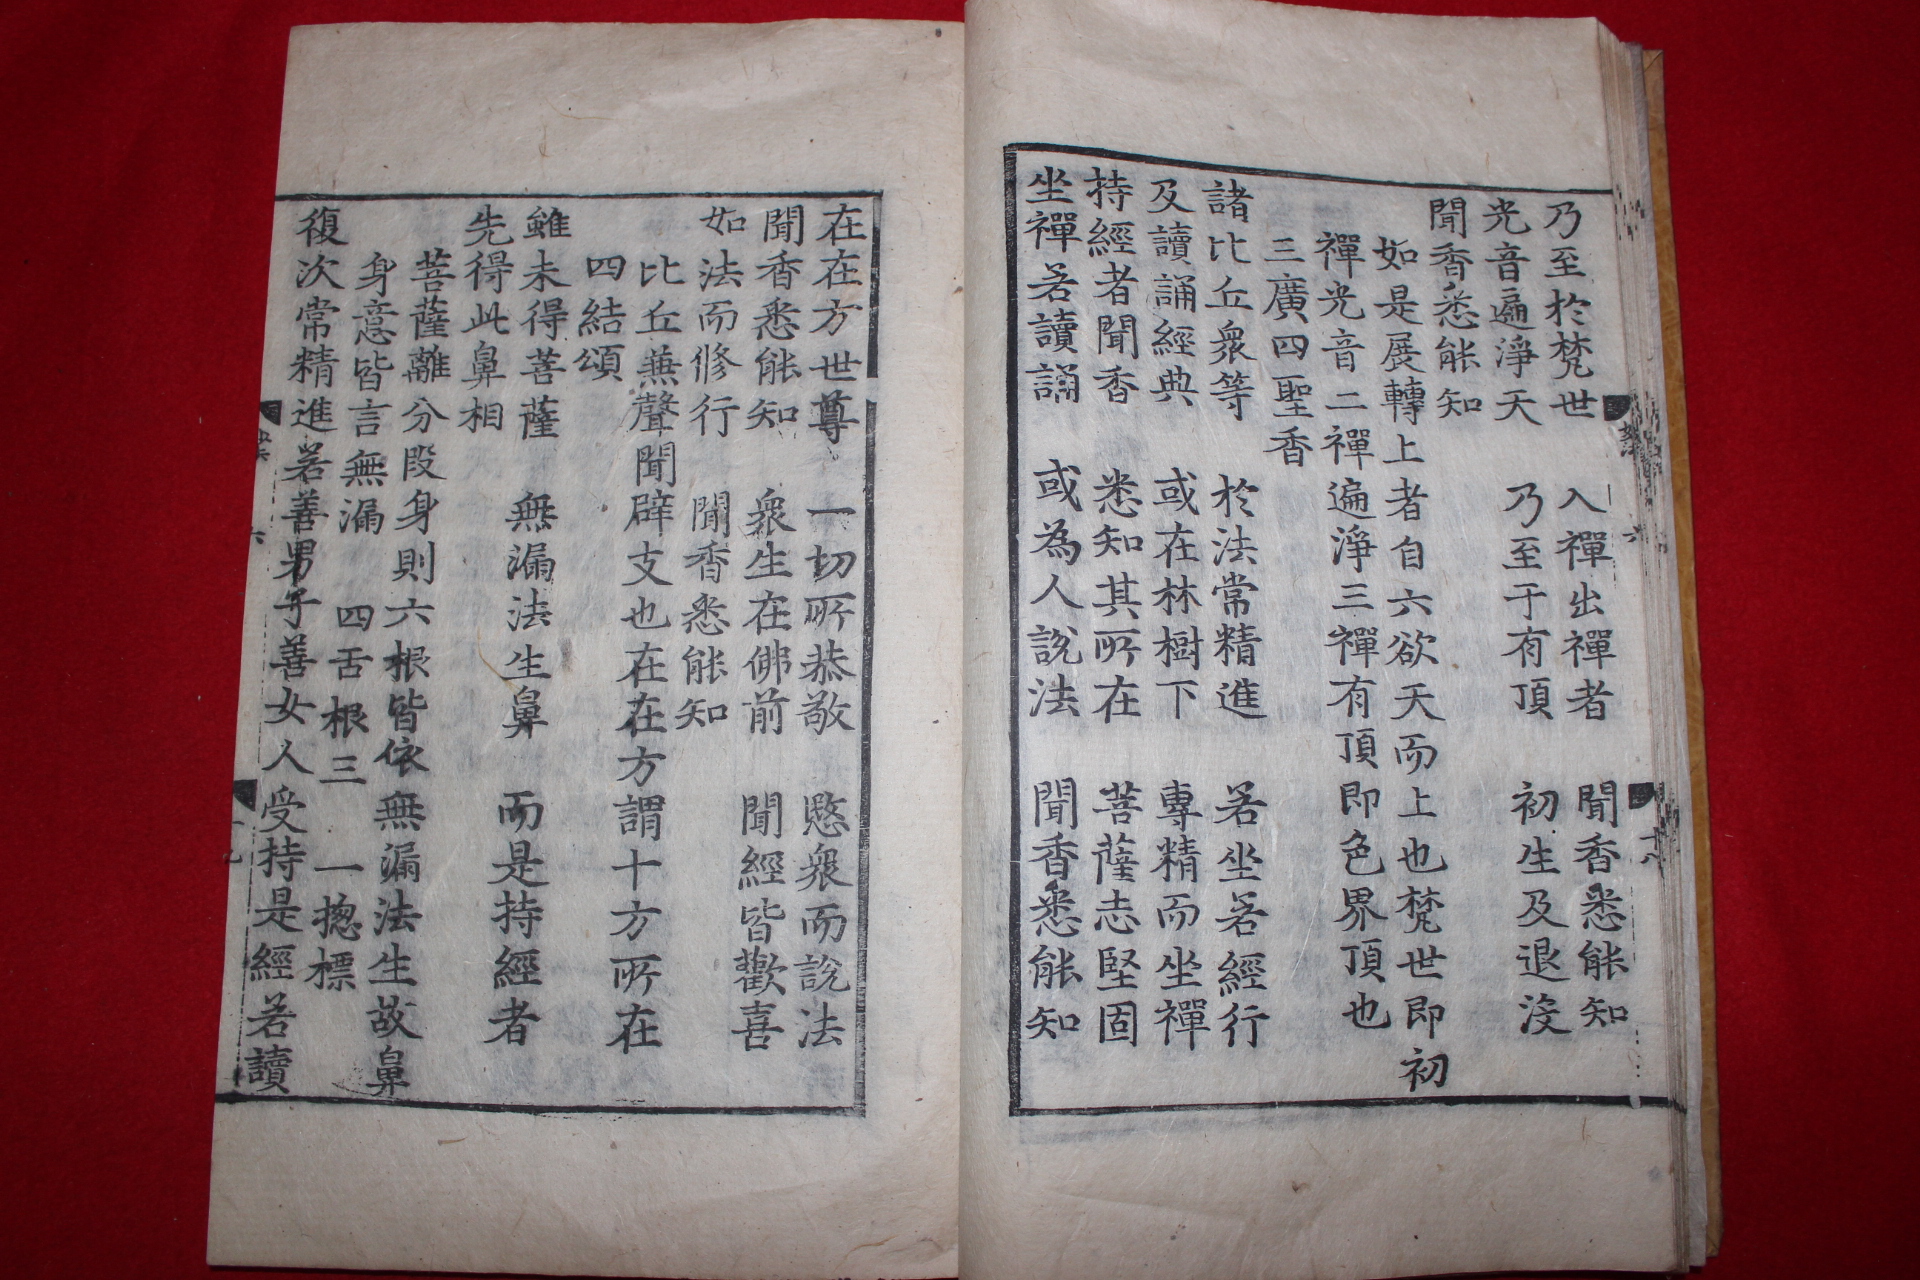 乃至於梵世 入禪出禪者 聞香悉能知
光音遍淨天 乃至于有頂 初生及退沒
聞香悉能知
如是展轉上者自六欲天而上也梵世即初
禪光音二禪遍淨三禪有頂即色界頂也
三廣四聖香
諸比丘衆等 於法常精進 若坐若經行
及讀誦經典 或在林樹下 專精而坐禪
持經者聞香 悉知其所在 菩薩志堅固
坐禪若讀誦 或為人說法 聞香悉能知
在在方世尊 一切所恭敬 愍衆而說法
聞香悉能知 衆生在佛前 聞經皆歡喜
如法而修行 聞香悉能知
比丘兼聲聞辟支也在在方謂十方所在
四結頌
雖未得菩薩 無漏法生鼻 而是持經者
先得此鼻相
菩薩離分段身則六根皆依無漏法生故鼻
身意皆言無漏 四舌根三 一摠標
復次常精進若善男子善女人受持是經若讀
六
十八